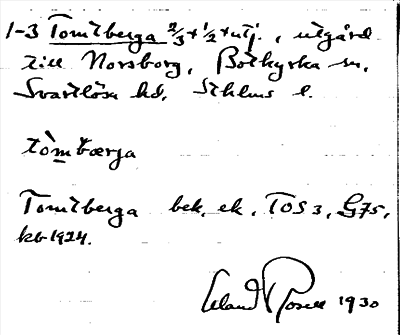 1-3 Tomtberga 2/3 + 1/2 + utj., utgård
till Norsborg, Botkyrka sn,
Svartlösa hd, Sthlms l.
tòmtbærja
Tomtberga bek. ek. TOS 3, G75,
kb 1924.
Erland Rosell 1930